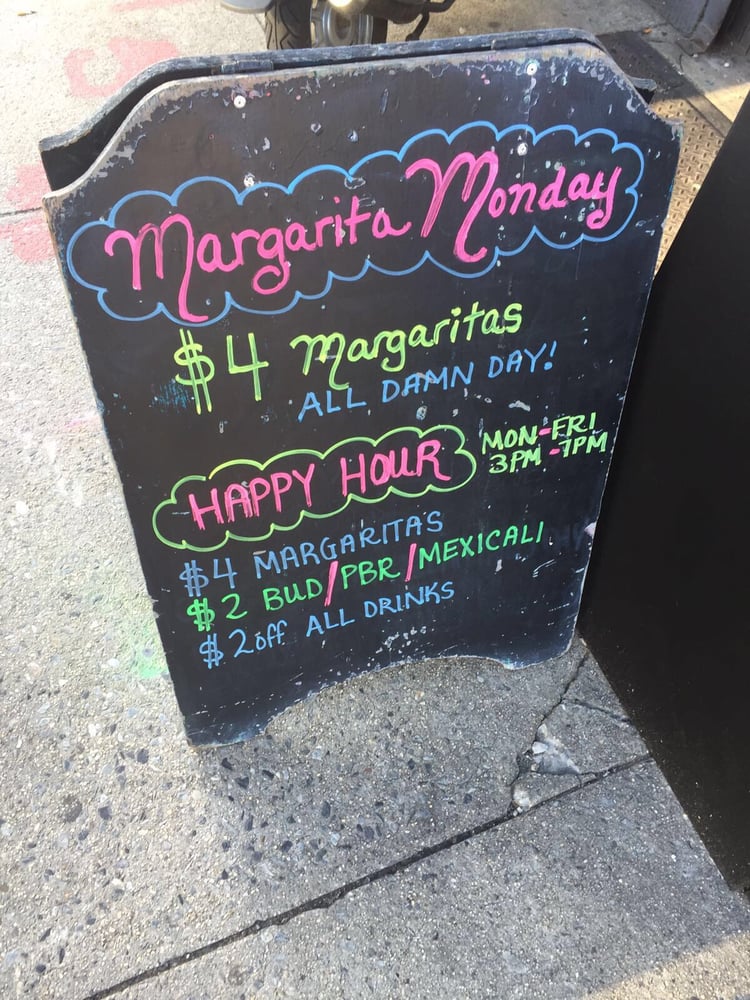 Margarita Monday
$4 Margaritas
ALL DAMN DAY!
HAPPY HOUR
MON-FRI
3PM-7PM
$4 MARGARITAS
$2 BUD/PBR/MEXICALI
$2 off ALL DRINKS